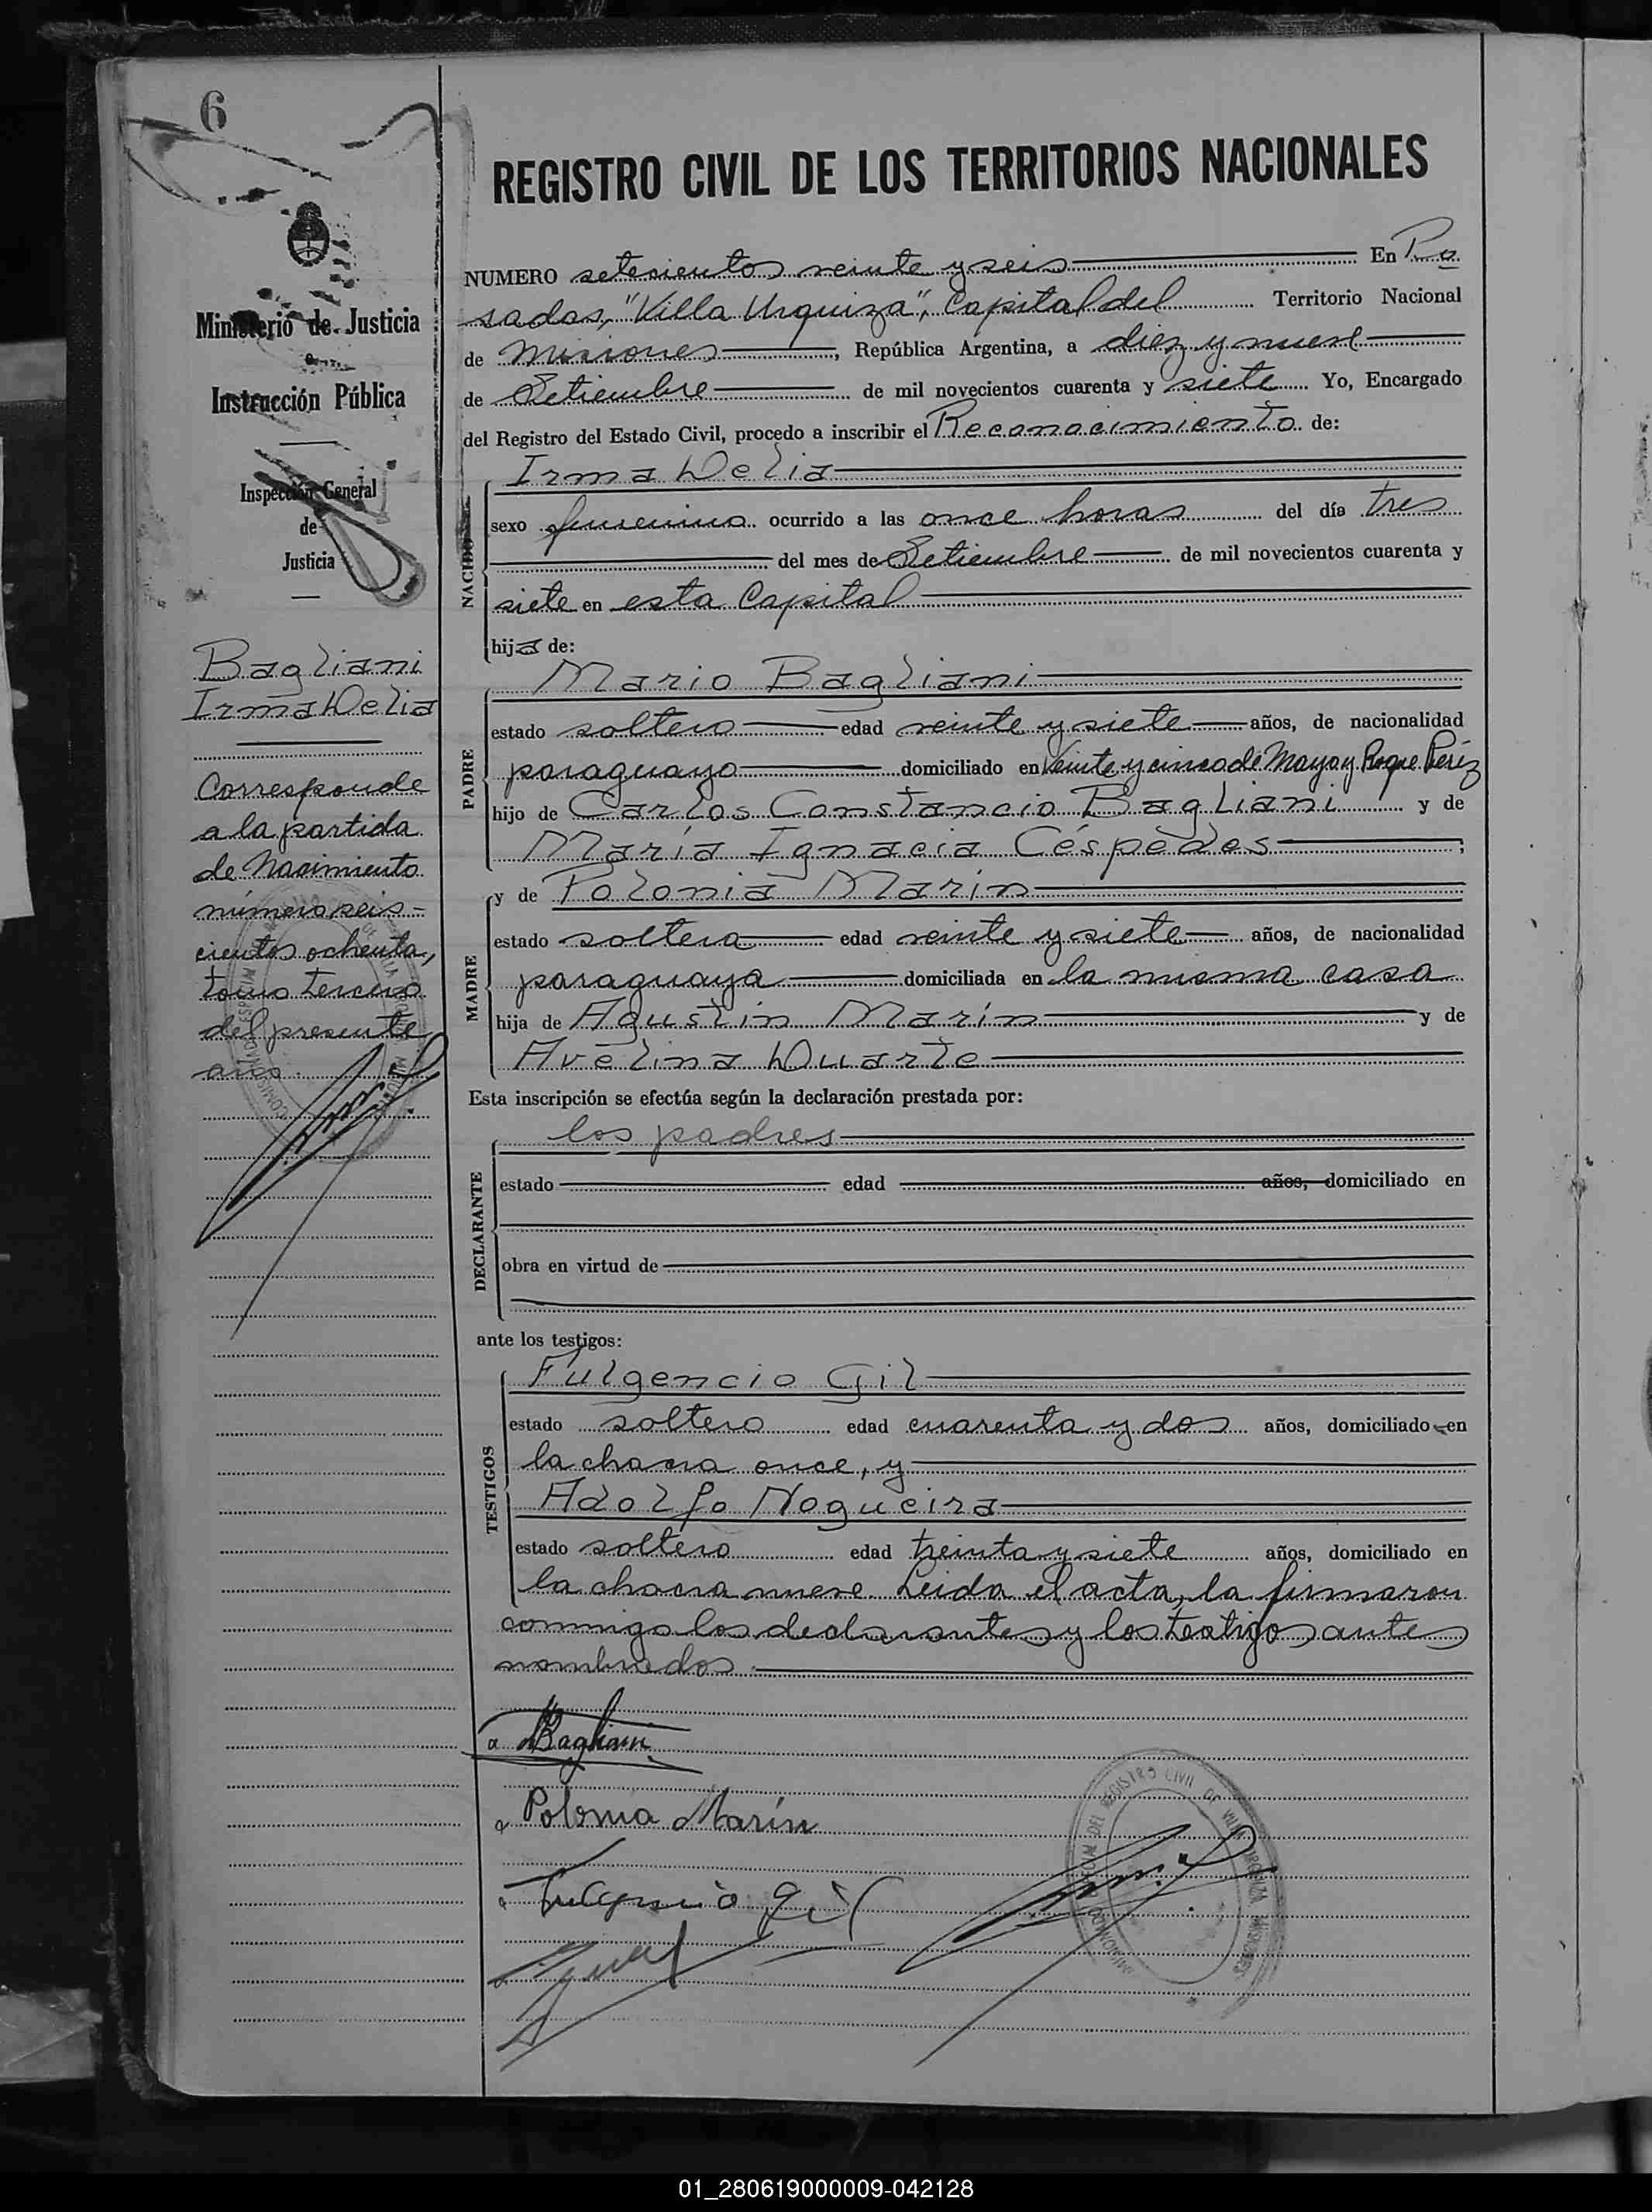 6
REGISTRO CIVIL DE LOS TERRITORIOS NACIONALES
Ministerio de Justicia
e
Instrucción Pública
Inspección General
de
Justicia
Bagliani
Irma Delia
Corresponde
a la partida
de Nacimiento
número seis-
cientos ochenta,
tomo tercero
del presente
año.
NUMERO setecientos veinte y seis En Po
sadas, "Villa Urquiza", Capital del Territorio Nacional
de Misiones, República Argentina, a diez y nueve
de Setiembre de mil novecientos cuarenta y siete Yo, Encargado
del Registro del Estado Civil, procedo a inscribir el Reconocimiento de:
NACIDO
Irma Delia
sexo femenino ocurrido a las once horas del día tres
del mes de Setiembre de mil novecientos cuarenta y
siete en esta Capital
hija de:
PADRE
Mario Bagliani
estado soltero edad veinte y siete años, de nacionalidad
paraguayo domiciliado en Veinte y cinco de Mayo y Roque Pérez
hijo de Carlos Constancio Bagliani y de
María Ignacia Céspedes;
MADRE
y de Polonia Marín
estado soltera edad veinte y siete años, de nacionalidad
paraguaya domiciliada en la misma casa
hija de Agustín Marín y de
Avelina Duarte
Esta inscripción se efectúa según la declaración prestada por:
DECLARANTE
los padres
estado edad años, domiciliado en
obra en virtud de
ante los testigos:
TESTIGOS
Fulgencio Gil
estado soltero edad cuarenta y dos años, domiciliado en
la chacra once, y
Adolfo Nogueira
estado soltero edad treinta y siete años, domiciliado en
la chacra nueve. Leida el acta, la firmaron
conmigo los declarantes y los testigos antes
nombrados.
a MBagliani
a Polonia Marín
a Fulgencio Gil
REGISTRO CIVIL DE VILLA URQUIZA MISIONES
01_280619000009-042128